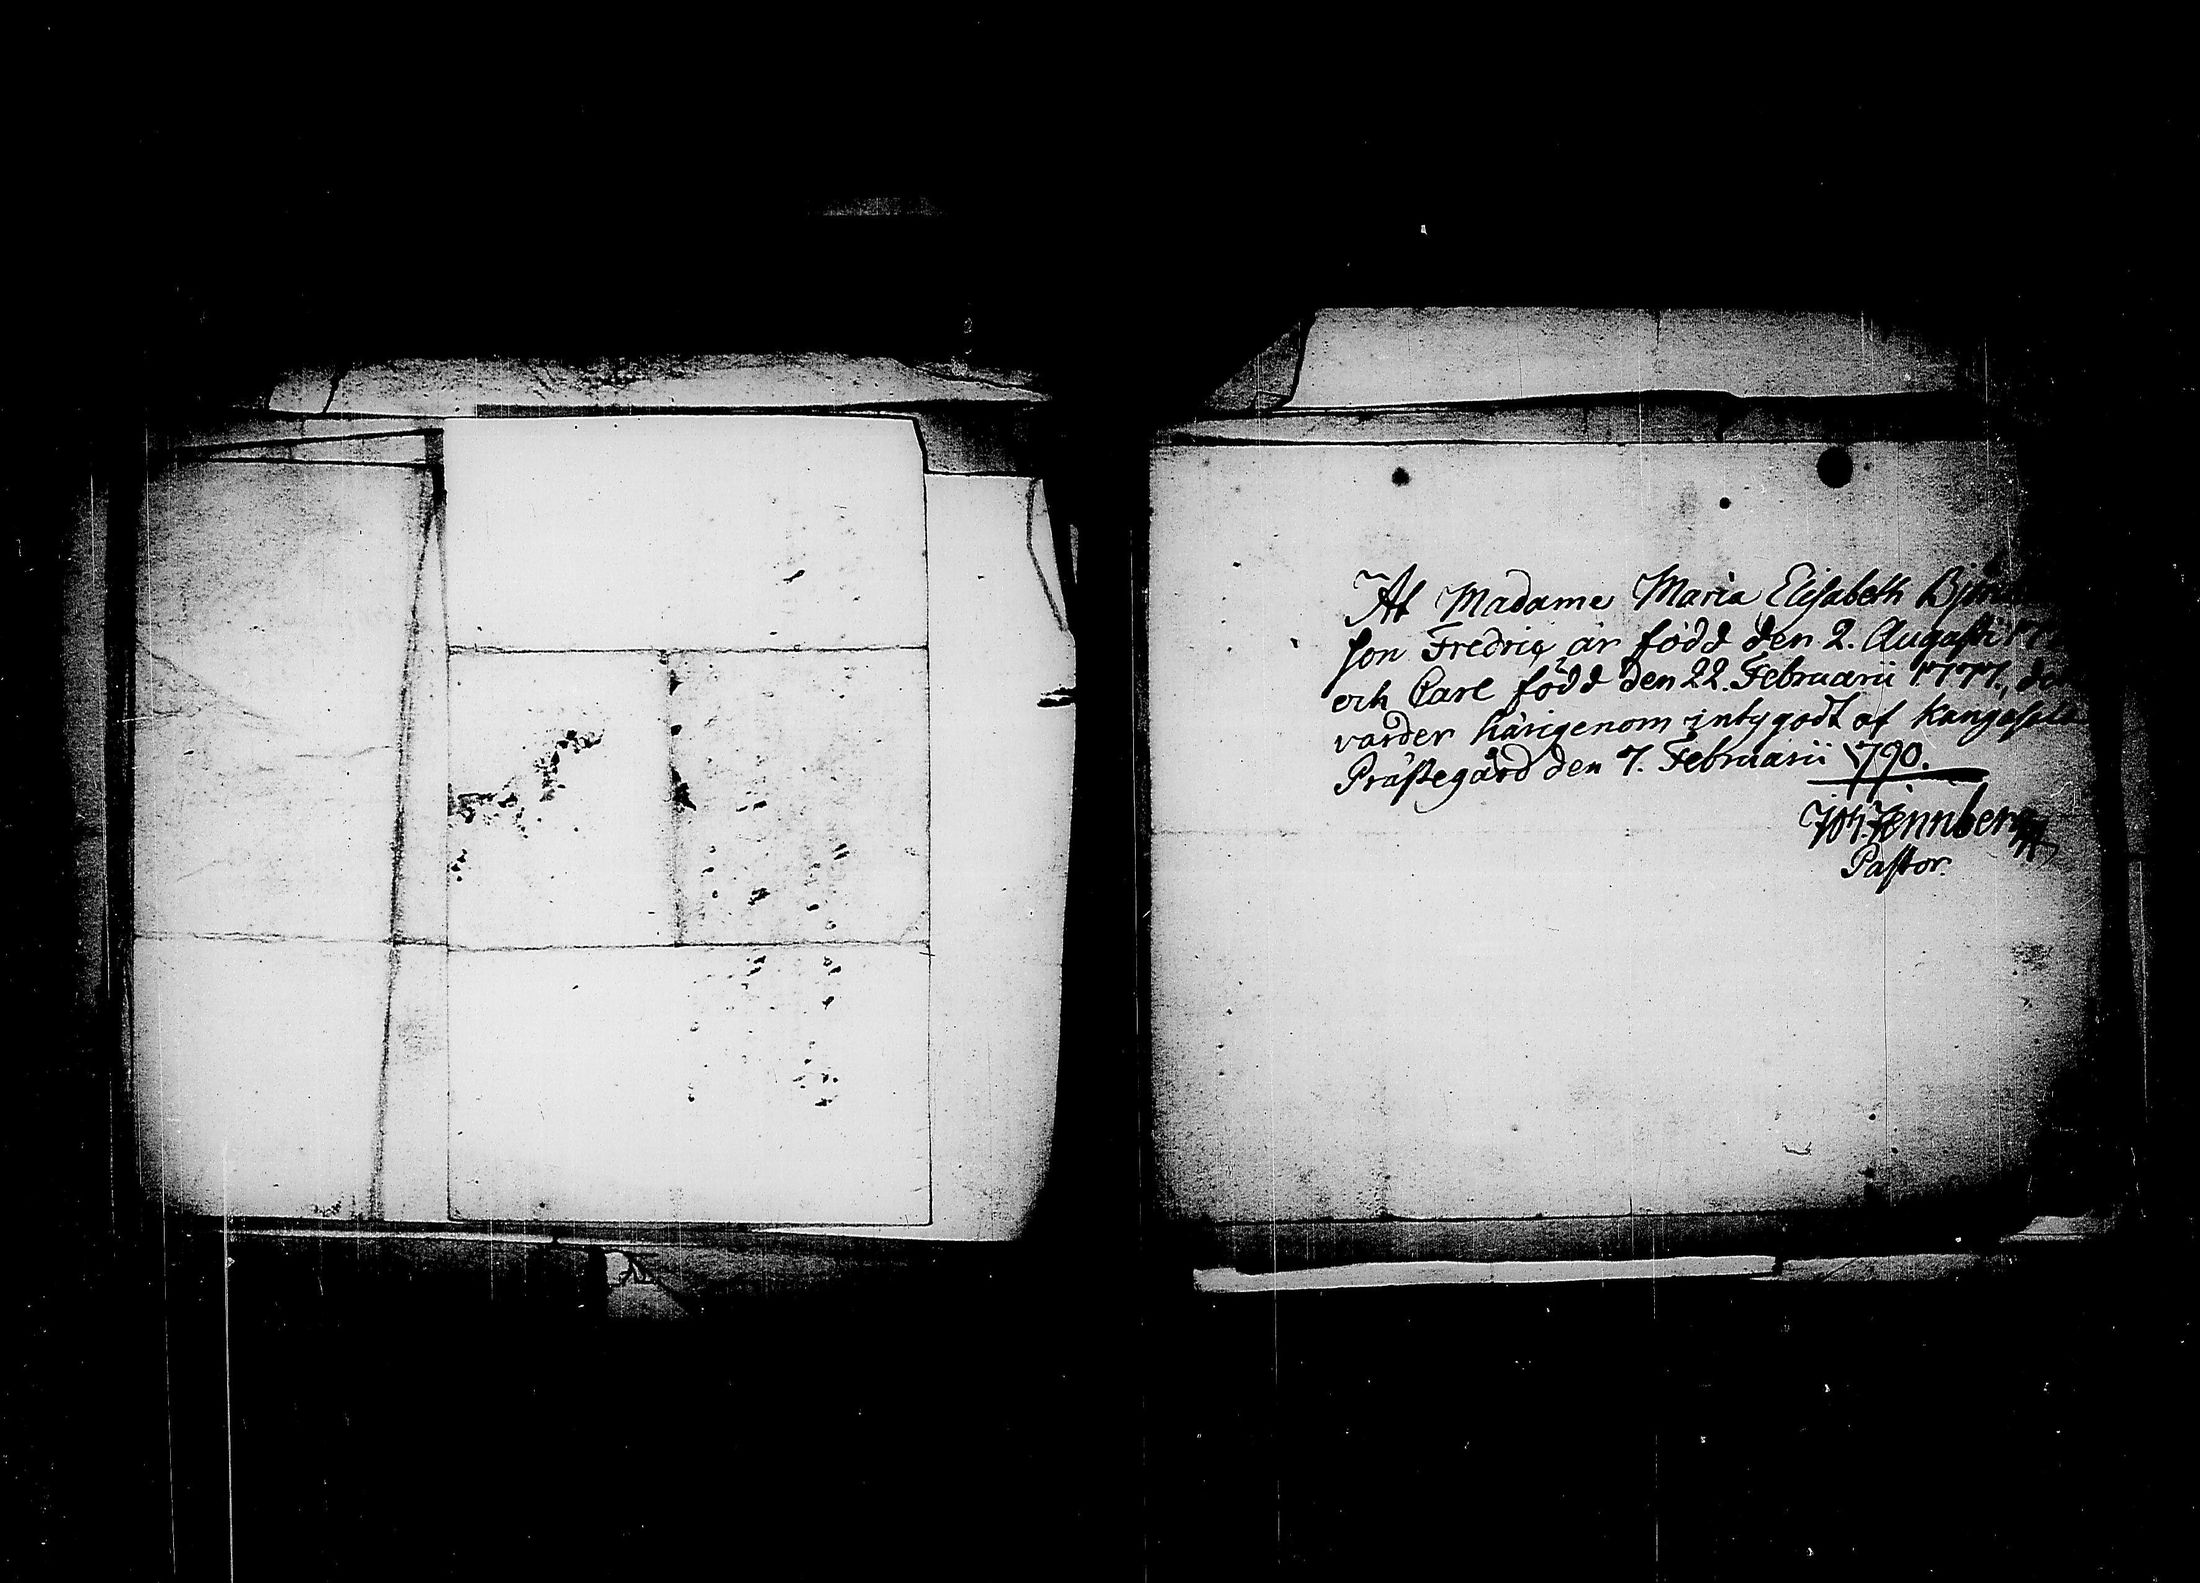 At Madame Maria Elisabeth
son Fredric är född den 2. Augusti
och Carl född den 22. Februarii 1777.,
varder härigenom intygadt af Kangasala
Prästegård den 7. Februarii 1790.
Joh. Zennberg
Pastor.